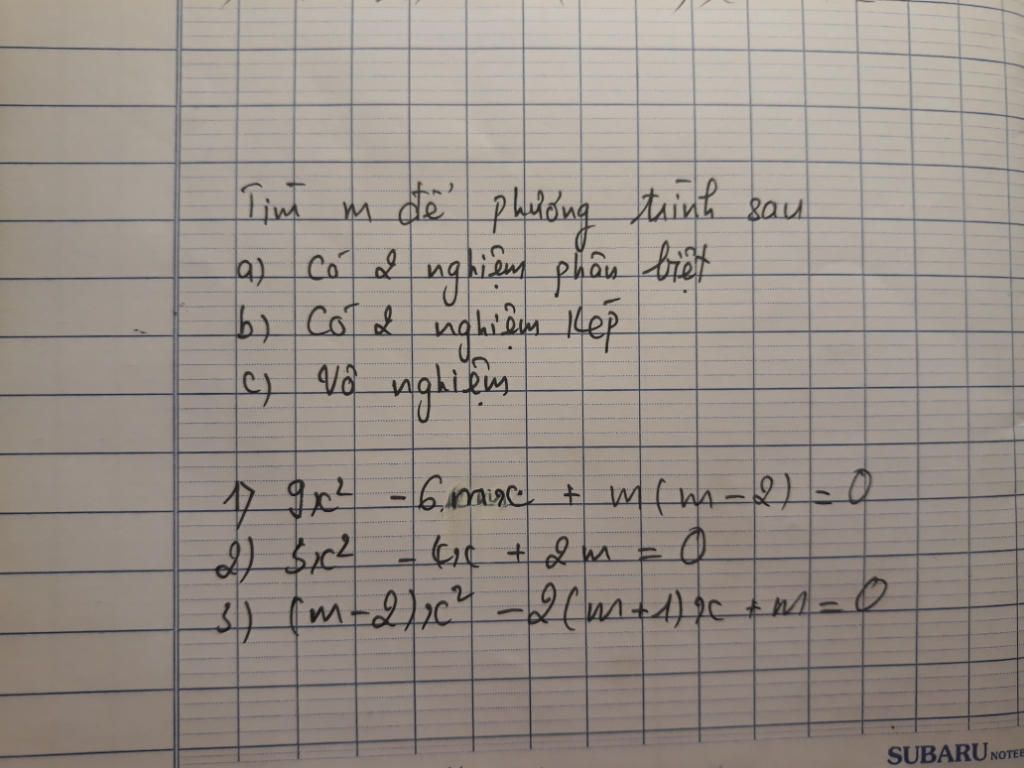 Tìm m để phương trình sau
a) Có 2 nghiệm phân biệt
b) Có 2 nghiệm kép
c) Vô nghiệm
1) 9x² - 6mx + m(m-2) = 0
2) 5x² - 4x + 2m = 0
3) (m-2)x² - 2(m+1)x + m = 0
SUBARU